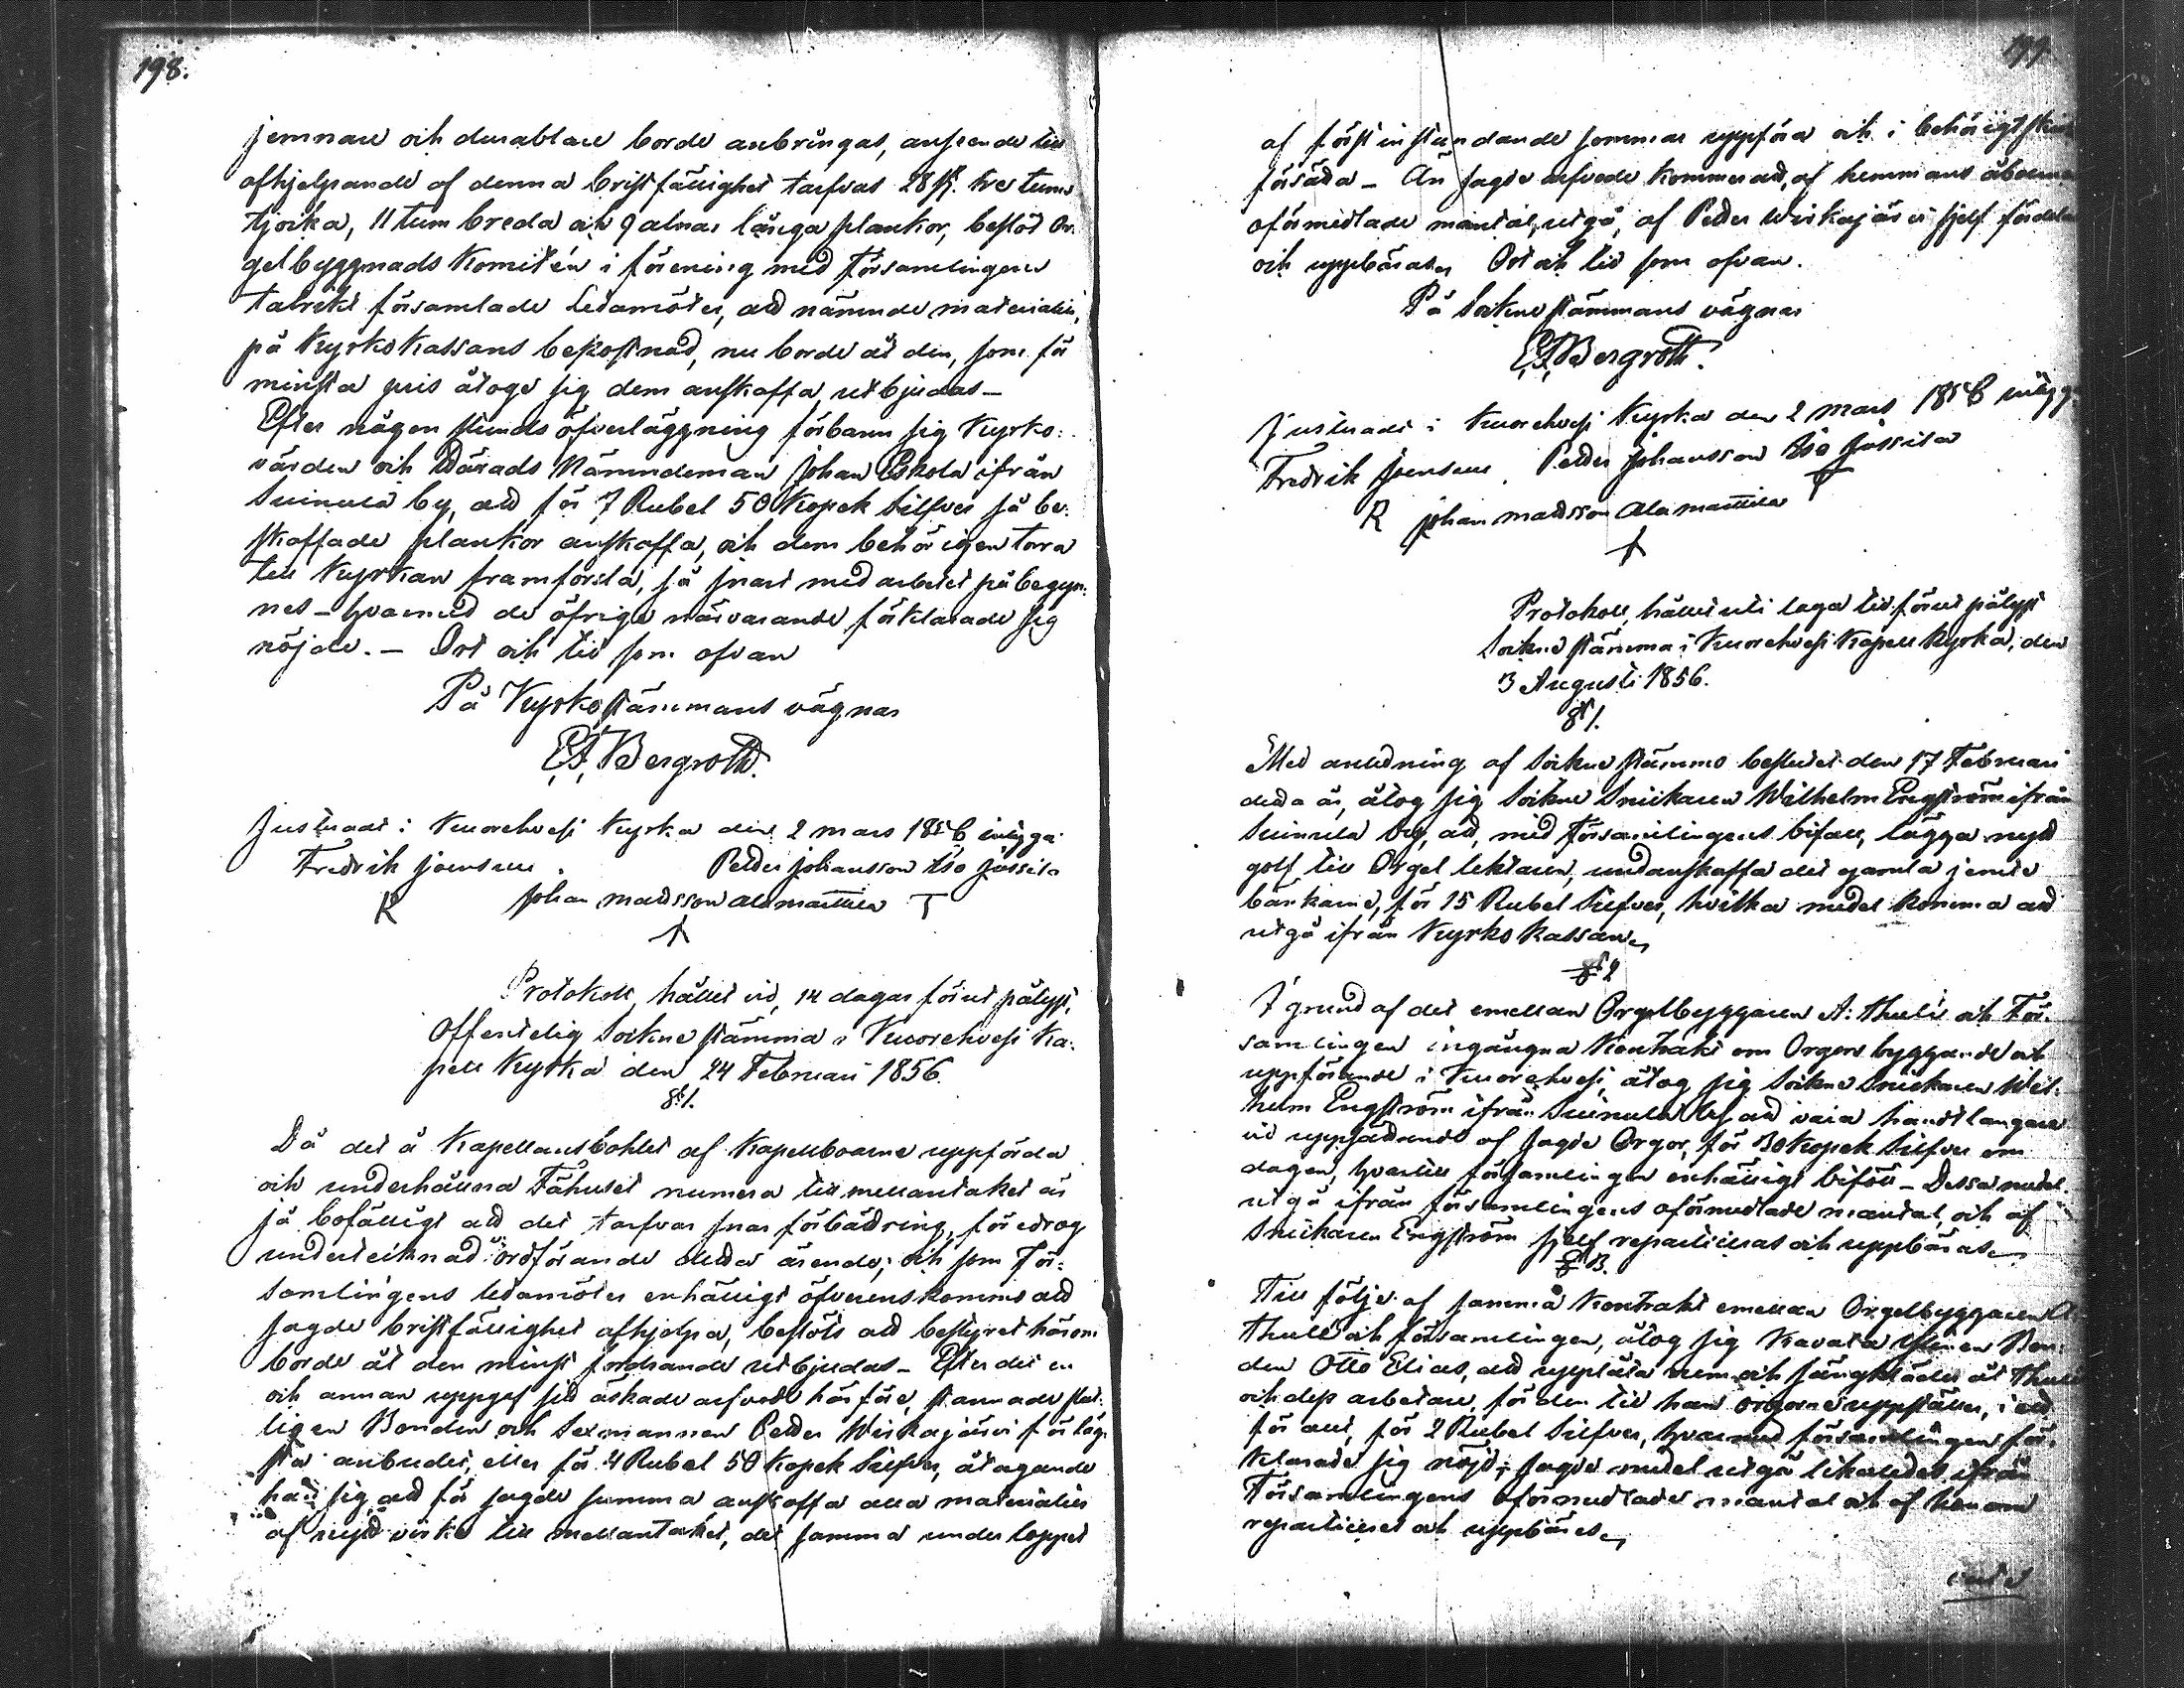 198.
jemnare och durablare borde anbringas, anseende till
afhjelpande af denna bristfällighet tarfvas 28 st. tre tums
tjocka, 11 tum breda och 9 alnar långa plankor, beslöt Or-
gelbyggnads Komitén i förening med Församlingens
talrikt församlade Ledamöter, att nämnde materialier,
på Kyrkokassans bekostnad, nu borde åt den, som för
minsta pris åtoge sig dem anskaffa, utbjudas –
Efter någon stunds öfverläggning förbann sig Kyrko-
värden och Härads Nämndeman Johan Eskola ifrån
Suinula by, att för 7 Rubel 50 Kopek Silfver så be-
skaffade plankor anskaffa, och dem behörigen torra
till Kyrkan framforsla, så snart med arbetet påbegyn-
nes – hvarmed de öfriga närvarande förklarade sig
nöjde. – Ort och tid som ofvan
På Kyrkostämmans vägnar
E. F. Bergroth.
Justeradt i Kuorehvesi Kyrka den 2 mars 1856, intyga
Fredrik Joensuu Petter Johansson Iso Jussila
R Johan Mattsson Alamattila T
Protokoll, hållet vid, 14 dagar förut pålyst,
Offentelig Sockne stämma i Kuorehvesi Ka-
pell Kyrka den 24 Februari 1856.
§ 1.
Då det å Kapellansbohlet af Kapellboarne uppförda
och underhållna Fähuset numera till mellantaket är
så bofälligt att det tarfvar snar förbättring, föredrog
undertecknad ordförande detta ärende; och som För-
samlingens ledamöter enhälligt öfverenskommo att
sagde bristfällighet afhjelpa, beslöts att bestyret härom
borde åt den minst fordrande utbjudas – Efter det en
och annan uppgef sitt äskade arfvode härför, stannade slut-
ligen Bonden och Sexmannen Petter Wiskajärvi för läg-
sta anbudet, eller för 4 Rubel 50 Kopek Silfver, åtagande
han sig att för sagde summa anskaffa alla materialier
af nytt virke till mellantaket, det samma under loppet
199.
af först instundande sommar uppföra och i behörigt skick
försätta – Än sagde arfvode kommer att, af hemmans åboerne
oförmedlade mantal, utgå, af Petter Wiskajärvi sjelf fördelas
och uppbäras. Ort och tid som ofvan.
På Sockne stämmans vägnar
E. F. Bergroth.
Justeradt i Kuorehvesi Kyrka den 2 mars 1856 intyga
Fredrik Joensuu Petter Johansson Iso Jussila
R Johan Mattsson Alamattila T
Protokoll, hållet uti laga tid förut pålyst
Sockne stämma i Kuorehvesi Kapell Kyrka, den
3 Augusti 1856.
§ 1.
Med anledning af Sockne stämmo beslutet den 17 Februari
detta år, åtog sig Sockne Snickaren Wilhelm Engström ifrån
Suinula by, att, med Församlingens bifall, lägga nytt
golf till Orgel lektaren, undanskaffa det gamla jemte
bänkarne, för 15 Rubel Silfver, hvilka medel komma att
utgå ifrån Kyrko Kassan.
§ 2
I grund af det emellan Orgelbyggaren A: Thulé och För-
samlingen ingångna Kontrakt om Orgors byggande och
uppförande i Kuorehvesi, åtog sig Sockne Snickaren Wil-
helm Engström ifrån Suinula by att vara handtlangare
vid uppsättande af sagde Orgor, för 30 Kopek Silfver om
dagen, hvartill församlingen enhälligt biföll – Dessa medel
utgå ifrån församlingens oförmedlade mantal, och af
Snickaren Engström sjelf reparticeras och uppbäras.
§ 3.
Till följe af samma Kontrakt emellan Orgelbyggaren A.
Thulé och församlingen, åtog sig Bon-
den Otto Elias, att upplåta rum och sängkläder åt Thulé
och dess arbetare, för den tid han orgorne uppställer, i ett
för allt, för 2 Rubel Silfver, hvarmed församlingen för-
klarade sig nöjd; sagde medel utgå likaledes ifrån
Församlingens oförmedlade mantal och af honom
reparticeras och uppbäres.